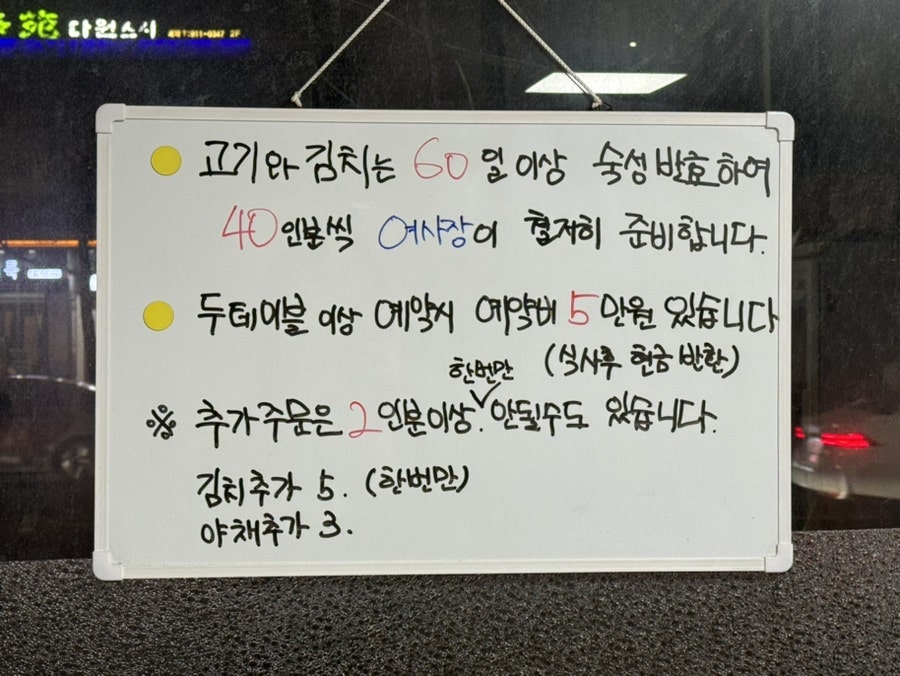 苑 다원스시 2F
고기와 김치는 60일 이상 숙성 발효하여
40인분씩 여사장이 철저히 준비합니다.
두테이블 이상 예약시 예약비 5만원 있습니다
(식사후 현금 반환)
한번만
※ 추가주문은 2인분이상. 안될수도 있습니다.
김치추가 5. (한번만)
야채추가 3.